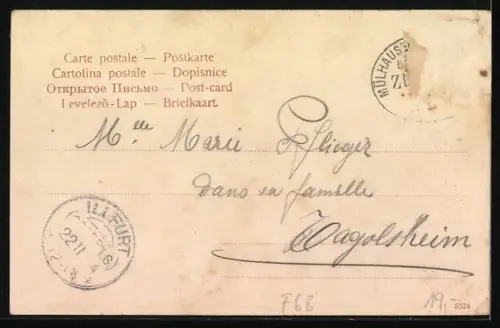 Carte postale — Postkarte
Cartolina postale — Dopisnice
Открытое Письмо — Post-card
Levelező-Lap — Briefkaart.
MÜLHAUSE
ZU
Mlle Marie Pflieger
dans sa famille
Tagolsheim
ILLFURT
(ELS)
22 11
F68
19,-
8524